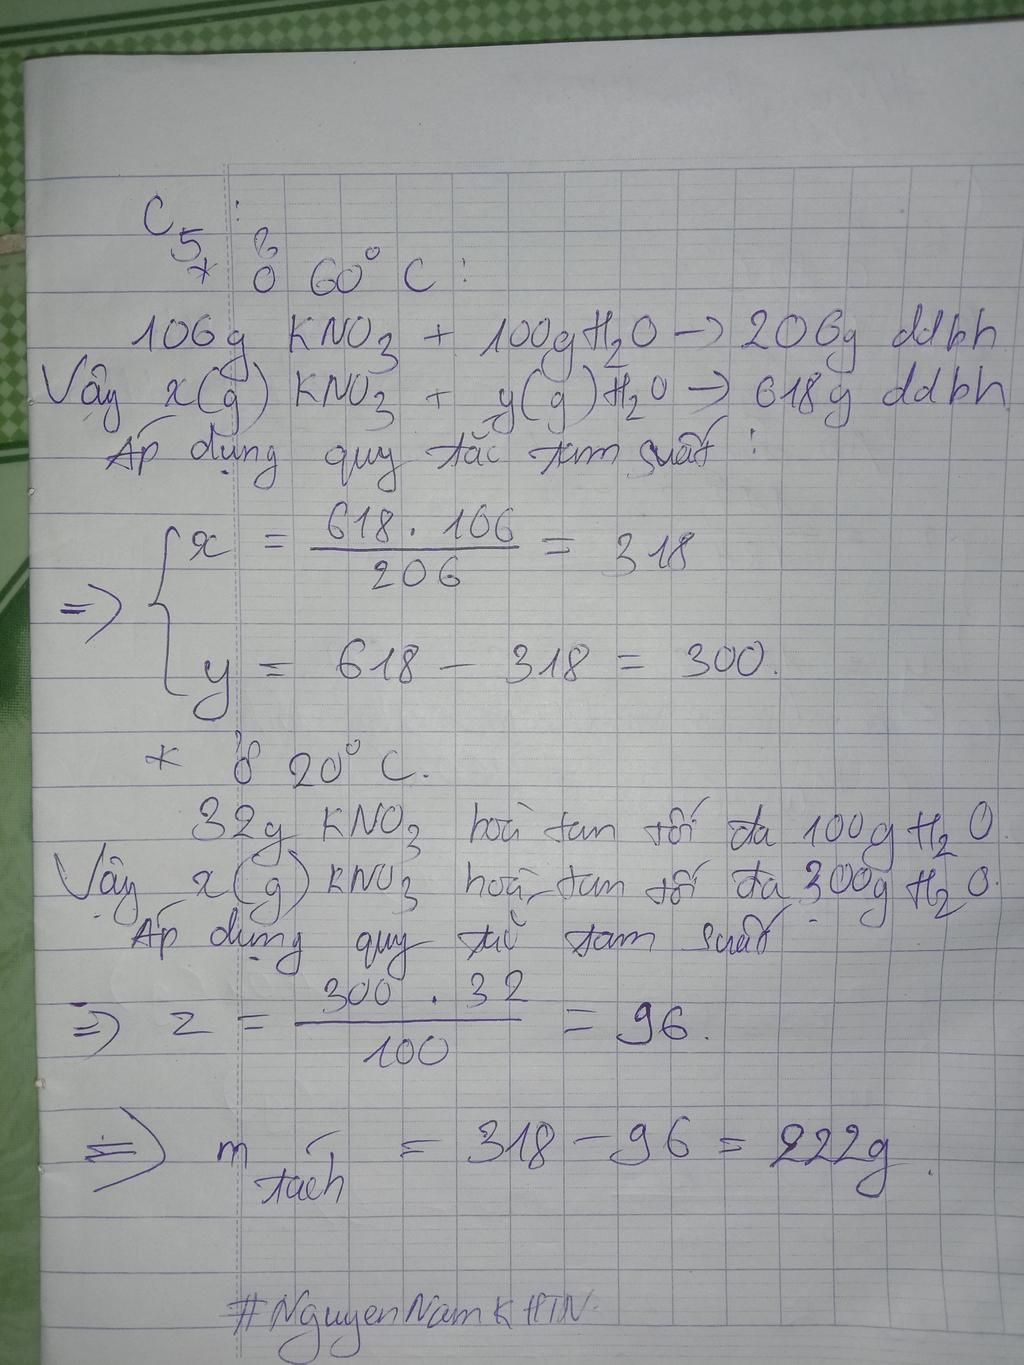 C5:
* Ở 60°C:
106g KNO3 + 100g H2O → 206g ddbh
Vậy x(g) KNO3 + y(g) H2O → 618g ddbh
Áp dụng quy tắc tam suất:
=> { x = 618.106 / 206 = 318
y = 618 - 318 = 300.
* Ở 20°C.
32g KNO3 hoà tan tối đa 100g H2O.
Vậy z(g) KNO3 hoà tan tối đa 300g H2O.
Áp dụng quy tắc tam suất
=> z = 300.32 / 100 = 96.
=> m tách = 318 - 96 = 222g.
#NguyenNamKHTN